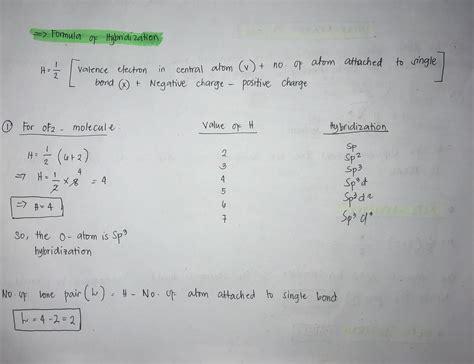 => Formula of Hybridization
H = 1/2 [ Valence electron in central atom (v) + no. of atom attached to single
bond (x) + Negative charge - positive charge ]
① For OF2 - molecule
H = 1/2 (6+2)
=> H = 1/2 x 8 4 = 4
=> H = 4
So, the O-atom is Sp3
hybridization
Value of H
2
3
4
5
6
7
Hybridization
Sp
Sp2
Sp3
Sp3d
Sp3d2
Sp3d3
No. of lone pair (L) = H - No. of atom attached to single bond
L = 4 - 2 = 2